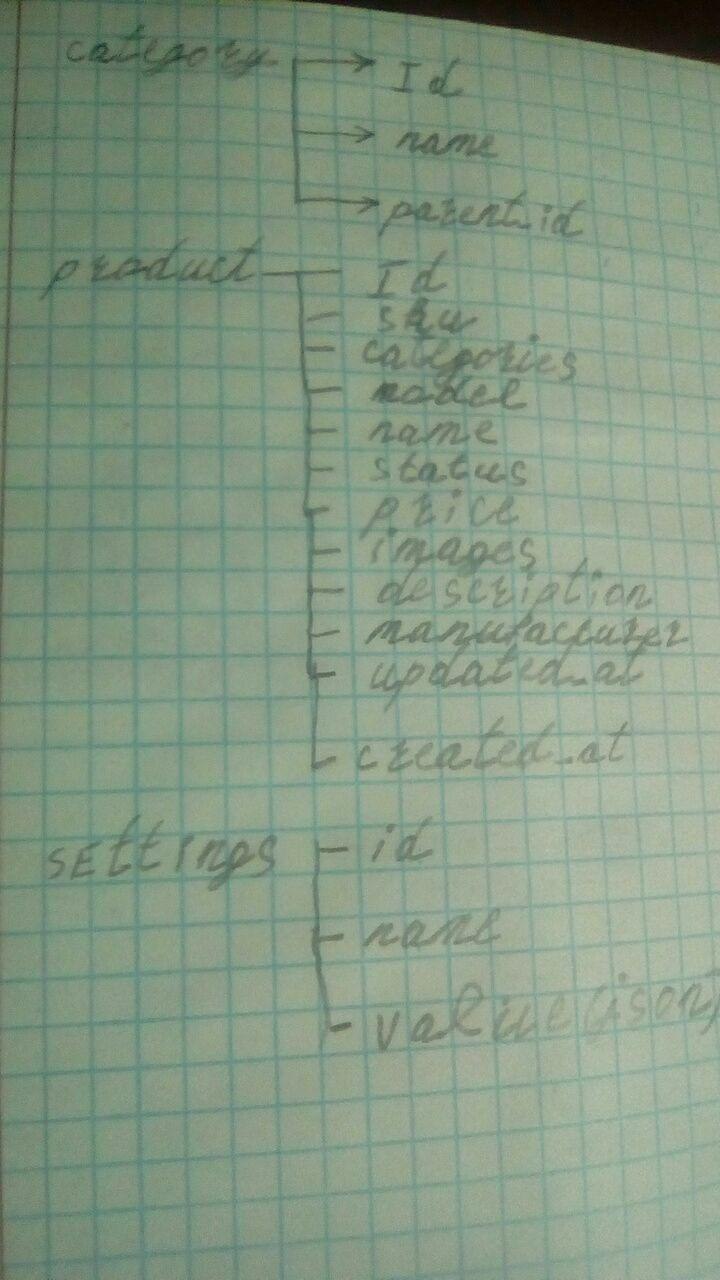 category
Id
name
parent_id
product Id
sku
categories
model
name
status
price
images
description
manufacturer
updated_at
created_at
settings id
name
value (json)